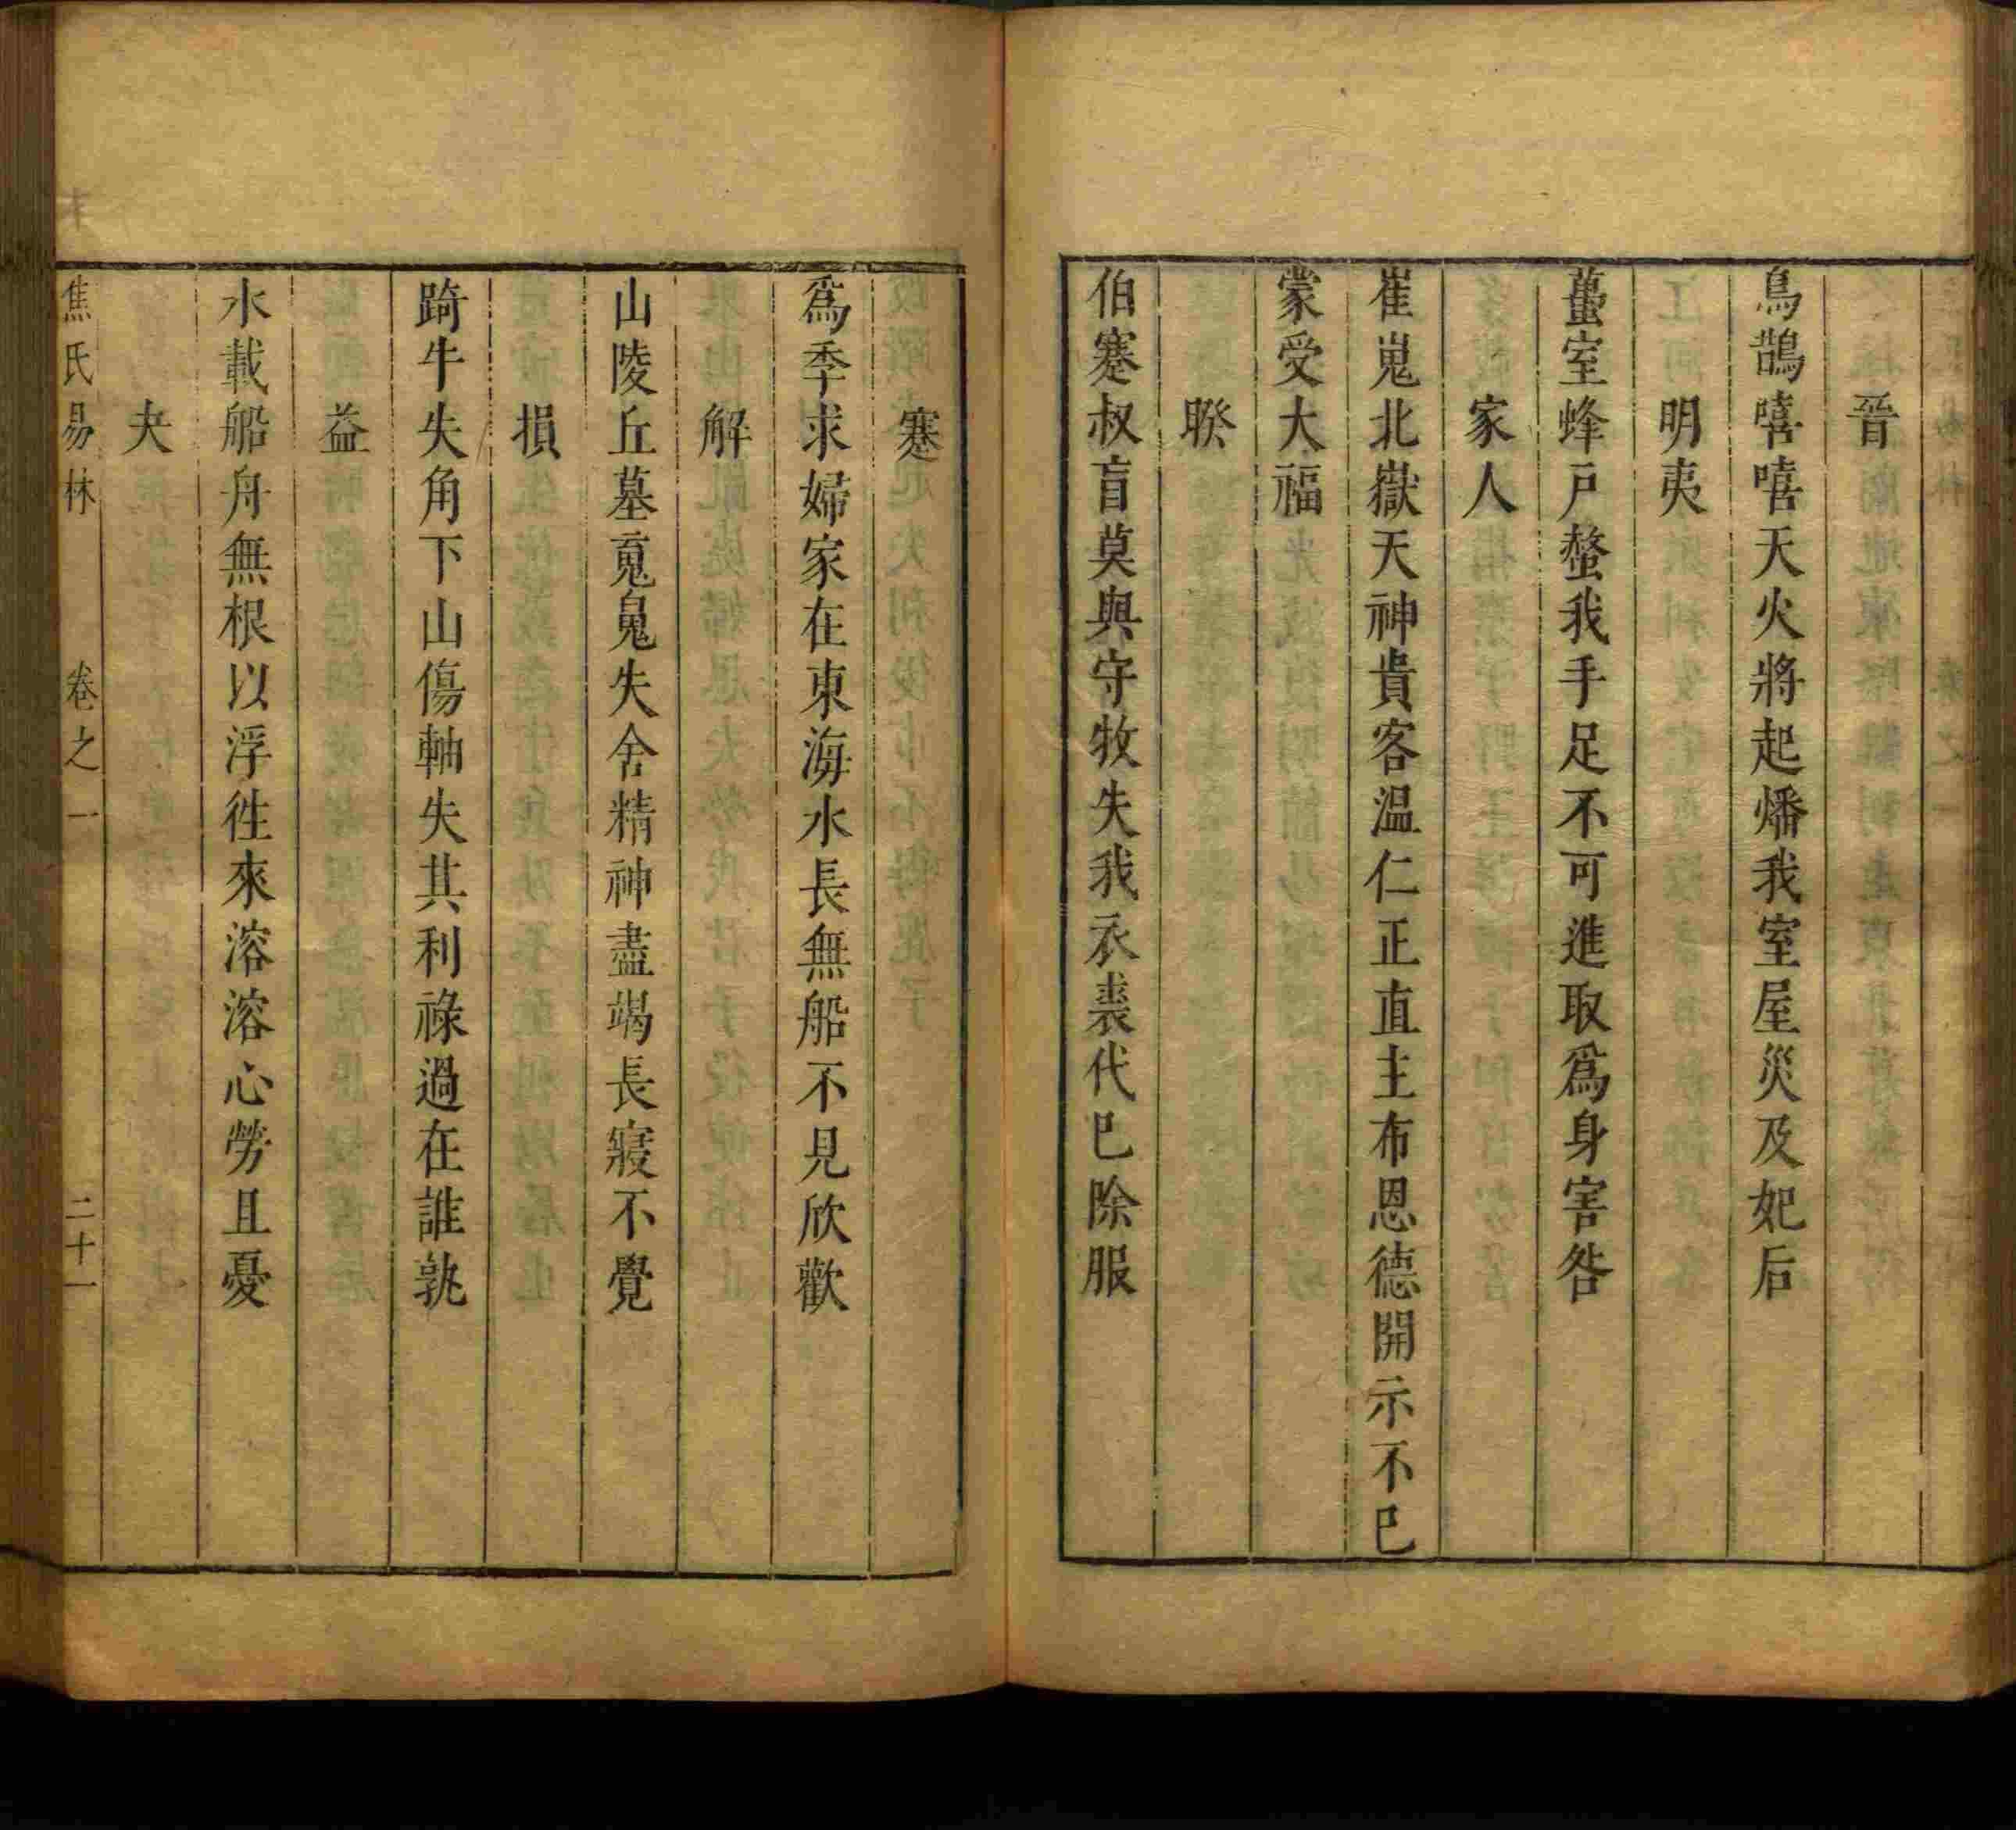 晉
鳥鵲嘻嘻天火將起燔我室屋災及妃后
明夷
蠆室蜂戶螫我手足不可進取爲身害咎
家人
崔嵬北嶽天神貴客温仁正直主布恩德開示不已
蒙受大福
睽
伯蹇叔盲莫與守牧失我衣裘代已除服
蹇
爲季求婦家在東海水長無船不見欣歡
解
山陵丘墓䰟䰟失舍精神盡竭長寢不覺
損
踦牛失角下山傷軸失其利祿過在誰孰
益
水載船舟無根以浮徃來溶溶心勞且憂
夬
焦氏易林 卷之一 二十一